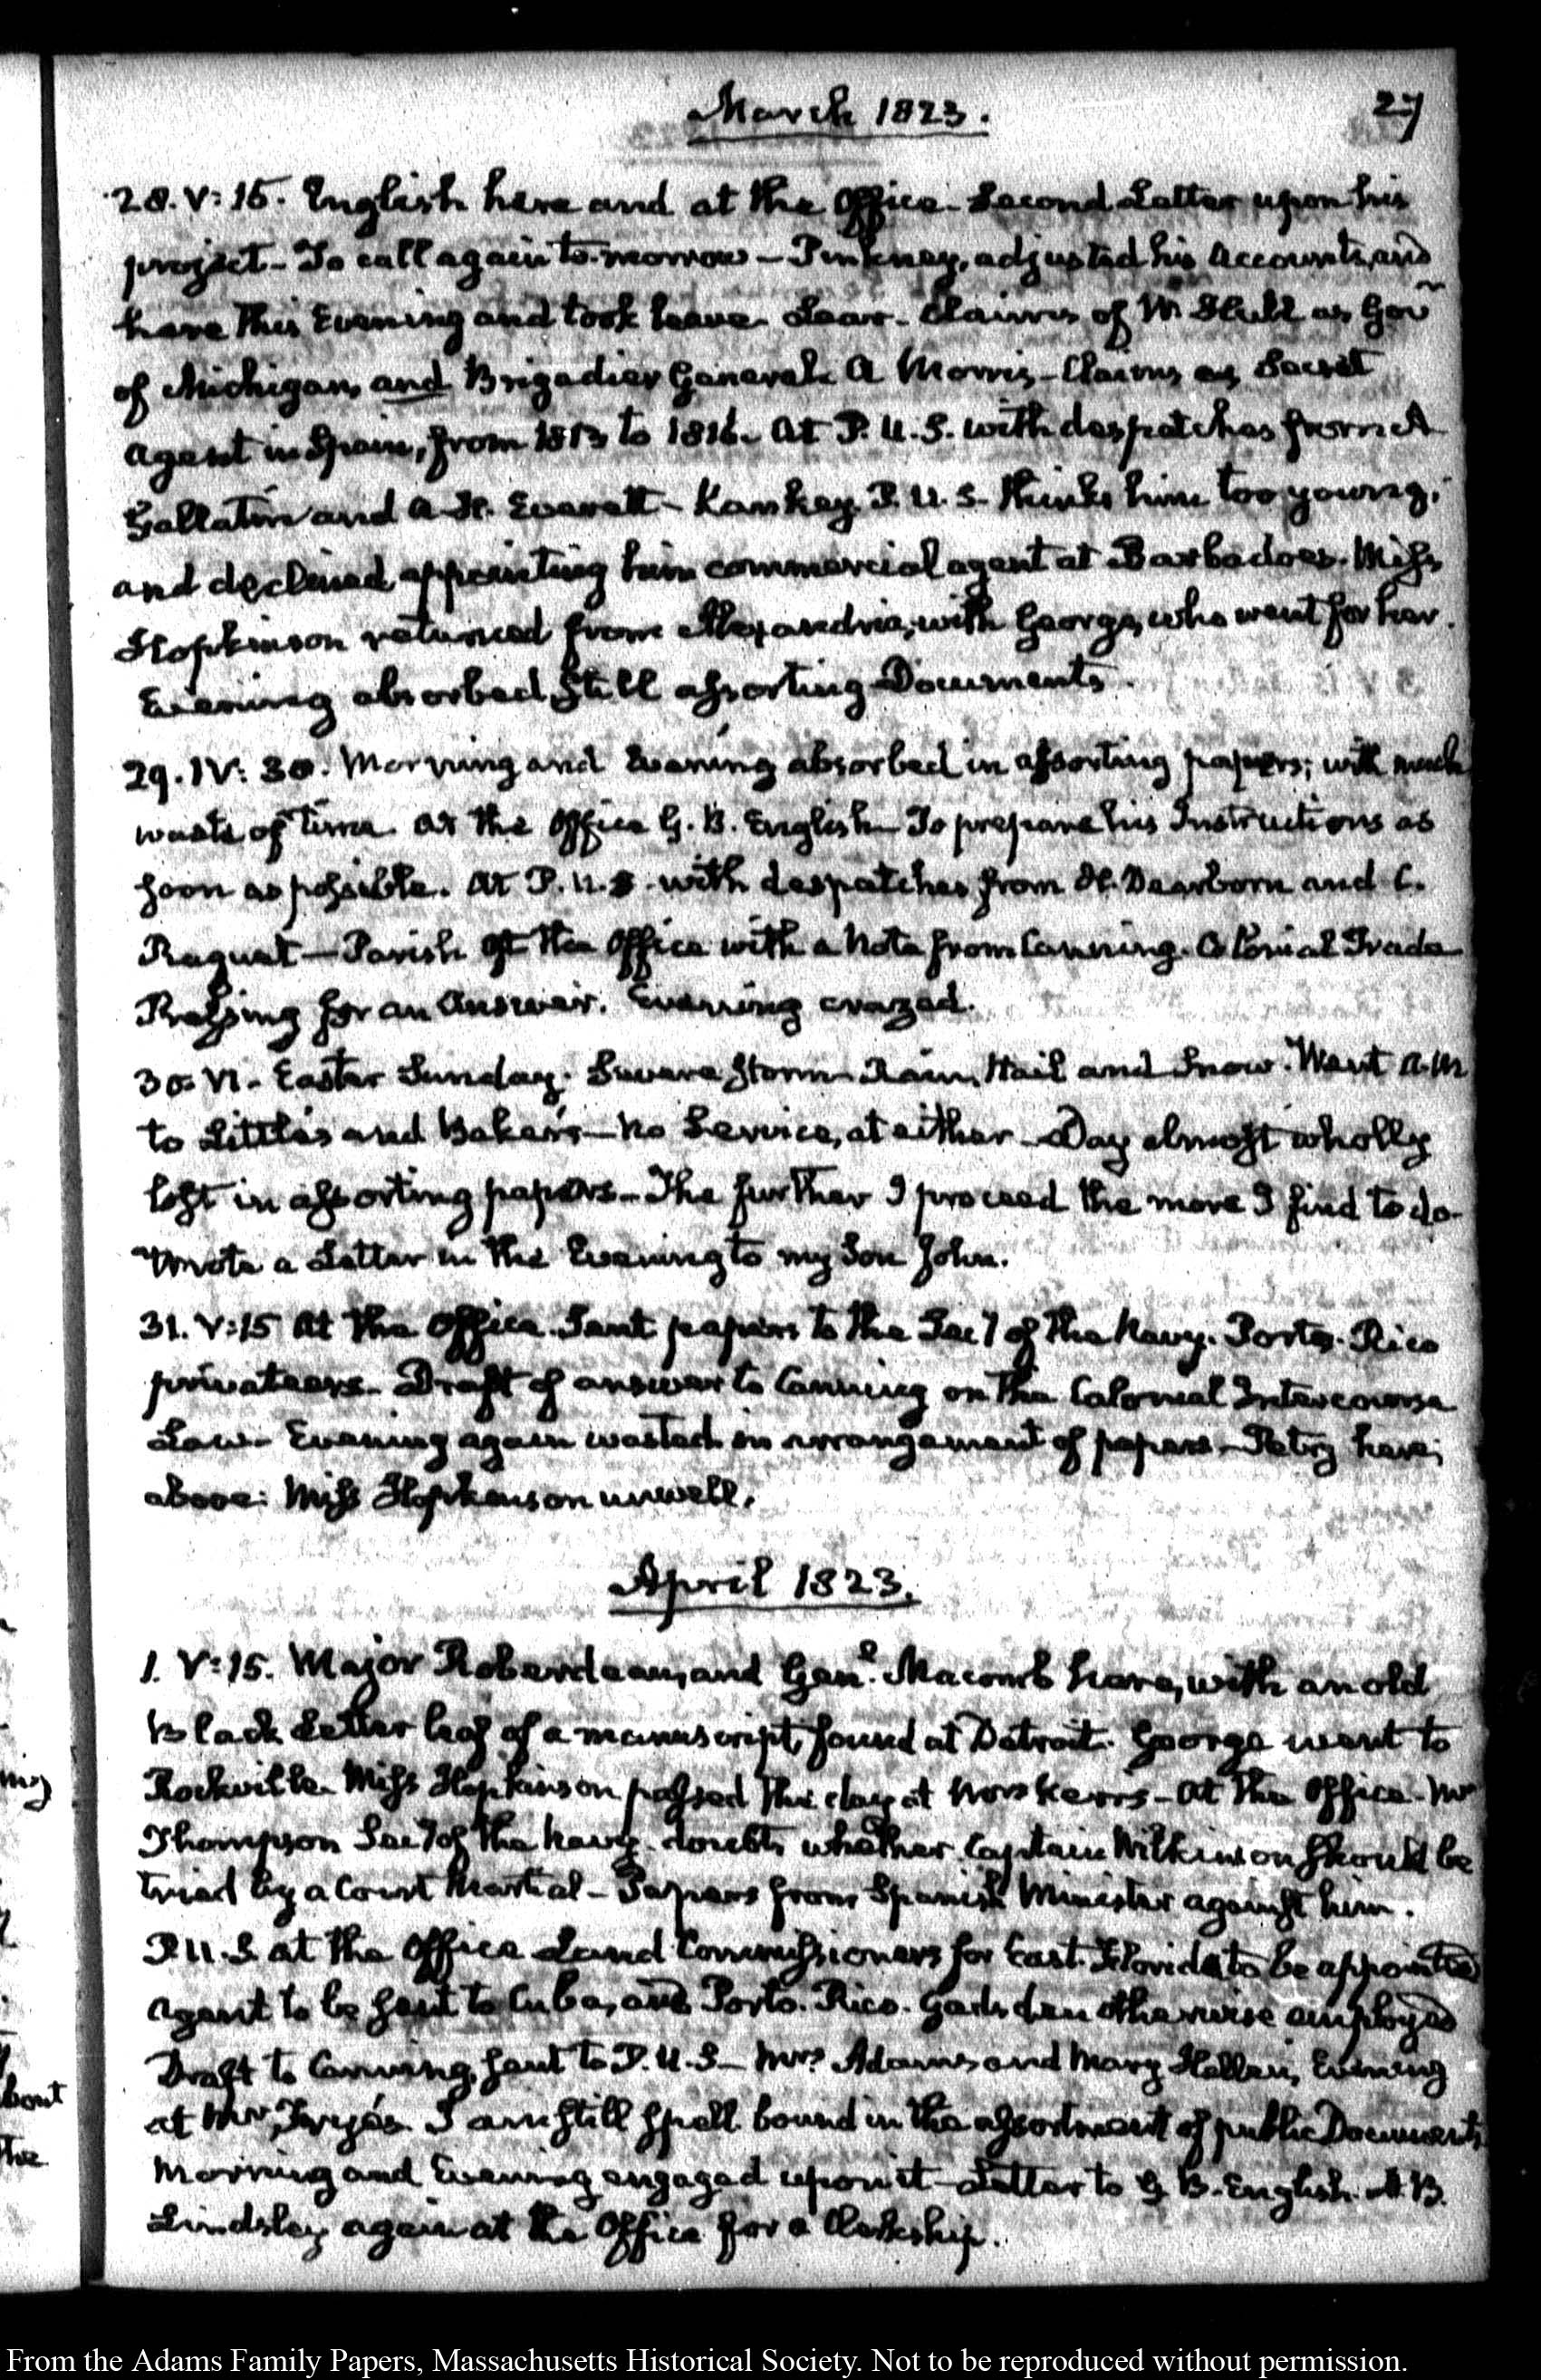 March 1823.
27
28. V:15. English here and at the Office. Second Letter upon his
project. To call again to-morrow – Pinkney, adjusted his Accounts, and
here this Evening and took leave. Lear. Claims of W. Hull as Gov
of Michigan, and Brigadier General. A Morris – Claims as Secret
Agent in Spain, from 1813 to 1816. At P. U. S. with despatches from A
Gallatin and A. H. Everett – Kankey. P. U. S. thinks him too young,
and declined appointing him commercial agent at Barbadoes. Miss
Hopkinson returned from Alexandria, with George, who went for her.
Evening absorbed still assorting Documents.
29. IV:30. Morning and Evening absorbed in assorting papers; with much
waste of time. At the Office G. B. English – To prepare his Instructions as
soon as possible. At P. U. S. with despatches from H. Dearborn and C.
Raguet – Parish at the Office with a Note from Canning. Colonial Trade
Pressing for an Answer. Evening crazed.
30. VI. Easter Sunday. Severe Storm – Rain, Hail and Snow. Went A.M
to Little's and Baker's – No Service, at either – Day almost wholly
lost in assorting papers – The further I proceed the more I find to do.
Wrote a Letter in the Evening to my Son John.
31. V:15 At the Office. Sent papers to the Secy of the Navy. Porto-Rico
privateers. Draft of answer to Canning on the Colonial Intercourse
Law. Evening again wasted in arrangement of papers – Petry here;
above. Miss Hopkinson unwell.
April 1823.
1. V:15. Major Roberdeau, and Genl. Macomb here, with an old
Black Letter leaf of a manuscript, found at Detroit. George went to
Rockville. Miss Hopkinson passed the day at Mrs Kerr's – At the Office – Mr
Thompson Secy of the Navy. doubts whether Captain Wilkinson should be
tried by a Court Martial – Papers from Spanish Minister against him.
P. U. S at the Office Land Commissioners for East-Florida to be appointed
Agent to be sent to Cuba, and Porto-Rico. Gadsden otherwise employed
Draft to Canning, sent to P. U. S – Mrs. Adams and Mary Hellen, Evening
at Mr. Frye's. I am still spell bound in the assortment of public Documents
Morning and Evening engaged upon it – Letter to G B. English. A. B.
Lindsley again at the Office for a Clerkship.
ing
bout
the
From the Adams Family Papers, Massachusetts Historical Society. Not to be reproduced without permission.